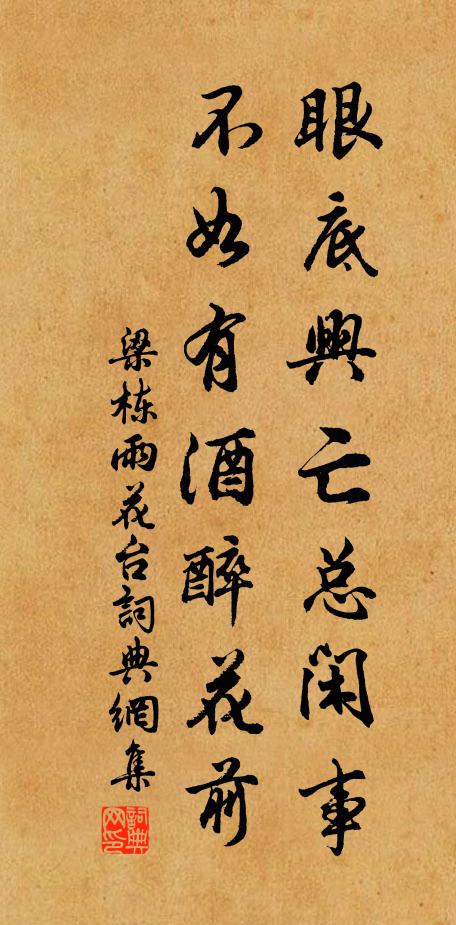 眼底興亡总闲事
不如有酒醉花前
梁栋雨花台詞典網集
詞典网印